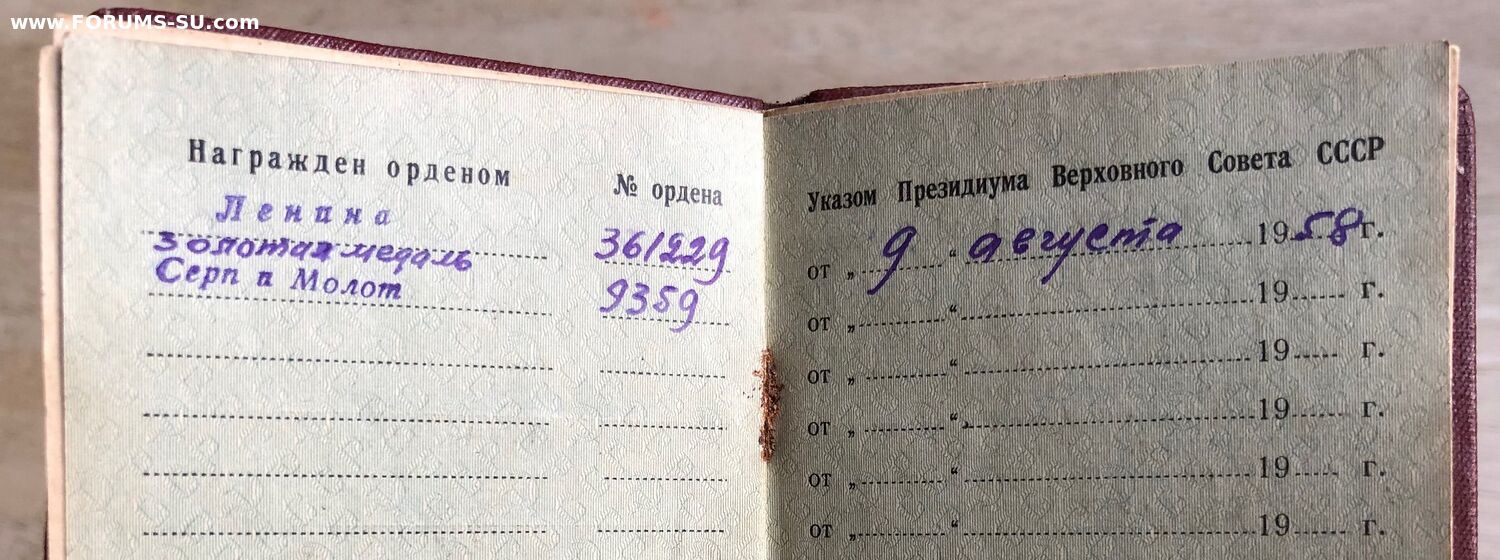 www.FORUMS-SU.com
Награжден орденом
№ ордена
Ленина
361229
золотая медаль
Серп и Молот
9359
Указом Президиума Верховного Совета СССР
от „ 9 “ августа 1958 г.
от „ “ 19 г.
от „ “ 19 г.
от „ “ 19 г.
от „ “ 19 г.
от „ “ 19 г.